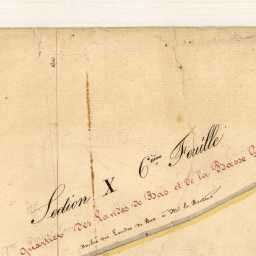 Section X 6ème Feuille
Quartier des Landes de Bas et de la Basse G
Landes de Bas